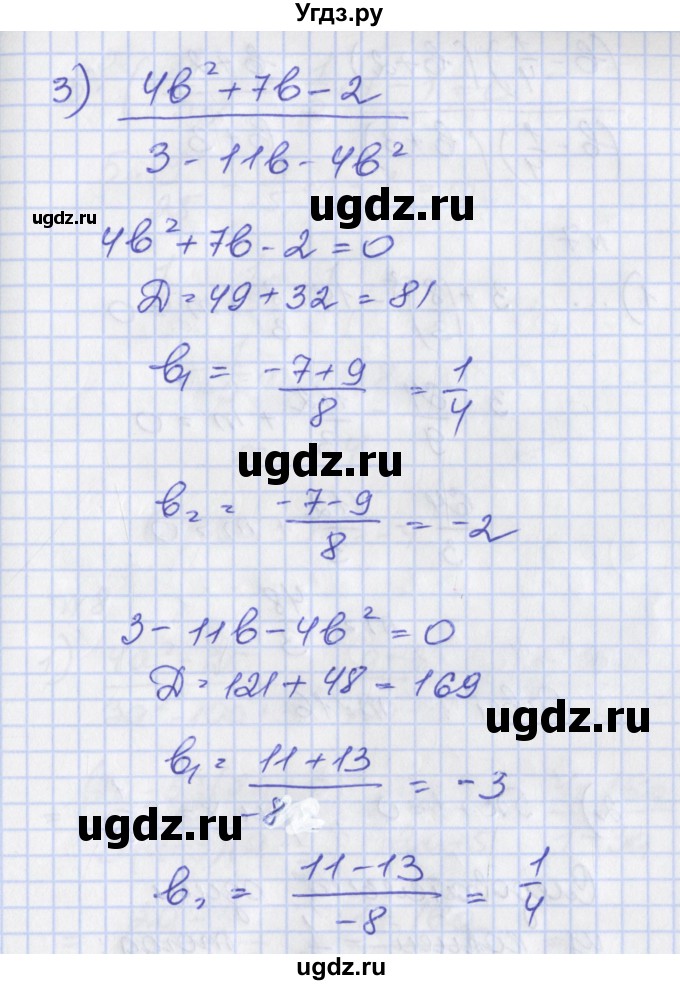 Угдз.ру
3) (4b² + 7b - 2) / (3 - 11b - 4b²)
ugdz.ru
ugdz.ru
4b² + 7b - 2 = 0
D = 49 + 32 = 81
b₁ = (-7 + 9) / 8 = 1/4
ugdz.ru
b₂ = (-7 - 9) / 8 = -2
3 - 11b - 4b² = 0
D = 121 + 48 = 169
ugdz.ru
b₁ = (11 + 13) / -8 = -3
ugdz.ru
b₂ = (11 - 13) / -8 = 1/4
ugdz.ru